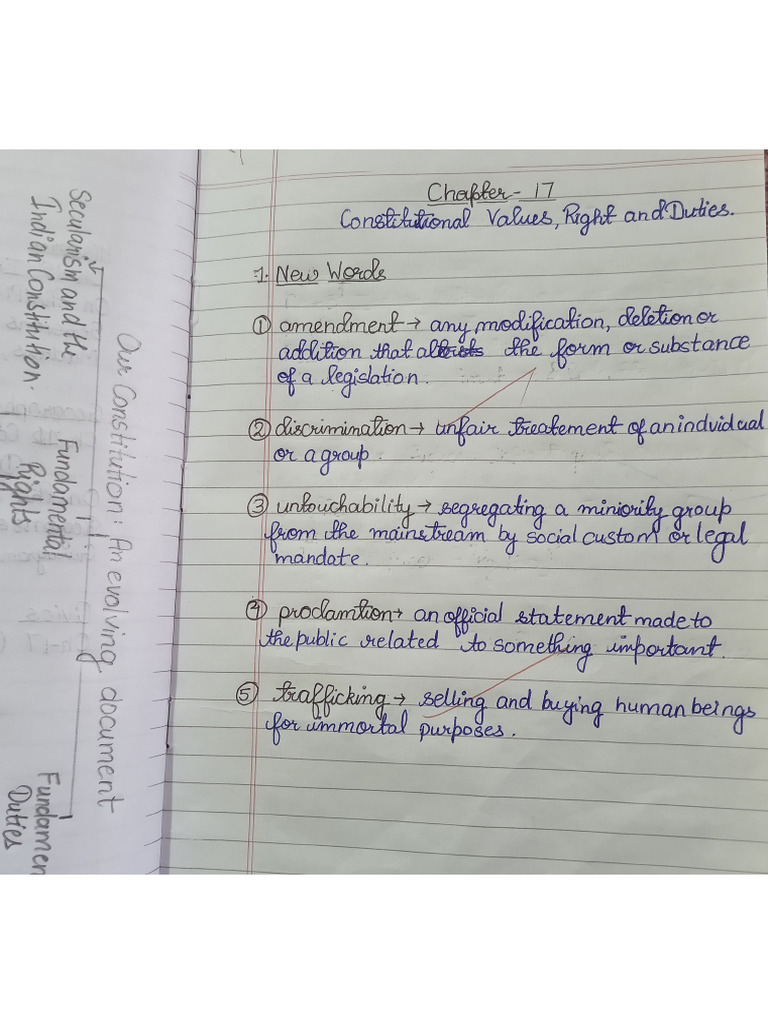 Chapter - 17
Constitutional Values, Right and Duties.
1. New Words
① amendment → any modification, deletion or
addition that the form or substance
of a legislation.
② discrimination → unfair treatement of an indvidual
or a group.
③ untouchability → segregating a miniority group
from the mainstream by social custom or legal
mandate.
④ proclamtion → an official statement made to
the public related to something important.
⑤ trafficking → selling and buying human beings
for immortal purposes.
Our Constitution: An evolving document
Secularism and the
Indian Constitution
Fundamental
Rights
Fundamen
Duties